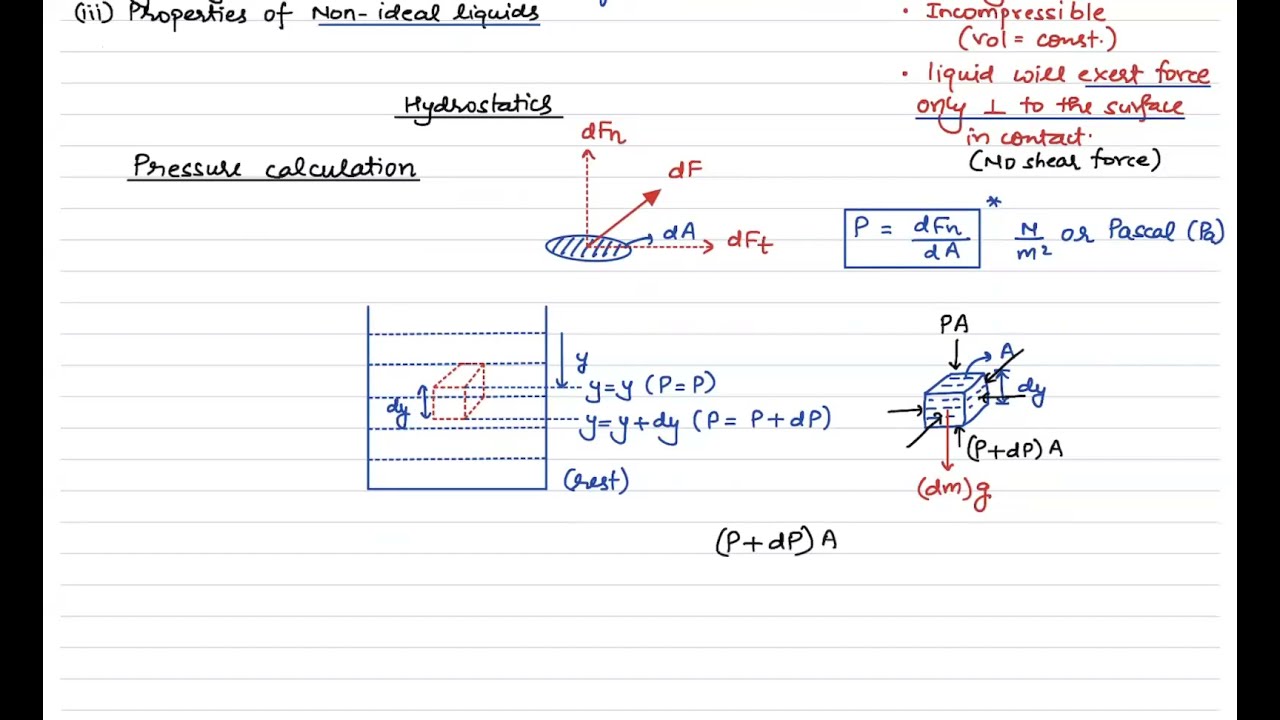 (iii) Properties of Non-ideal liquids
• Incompressible
(vol = const.)
• liquid will exert force
only ⊥ to the surface
in contact.
(No shear force)
Hydrostatics
Pressure calculation
dFn
dF
dA
dFt
P = dFn/dA * N/m² or Pascal (Pa)
y
y=y (P=P)
dy
y=y+dy (P= P+dP)
(rest)
PA
A
dy
(P+dP) A
(dm)g
(P+dP) A